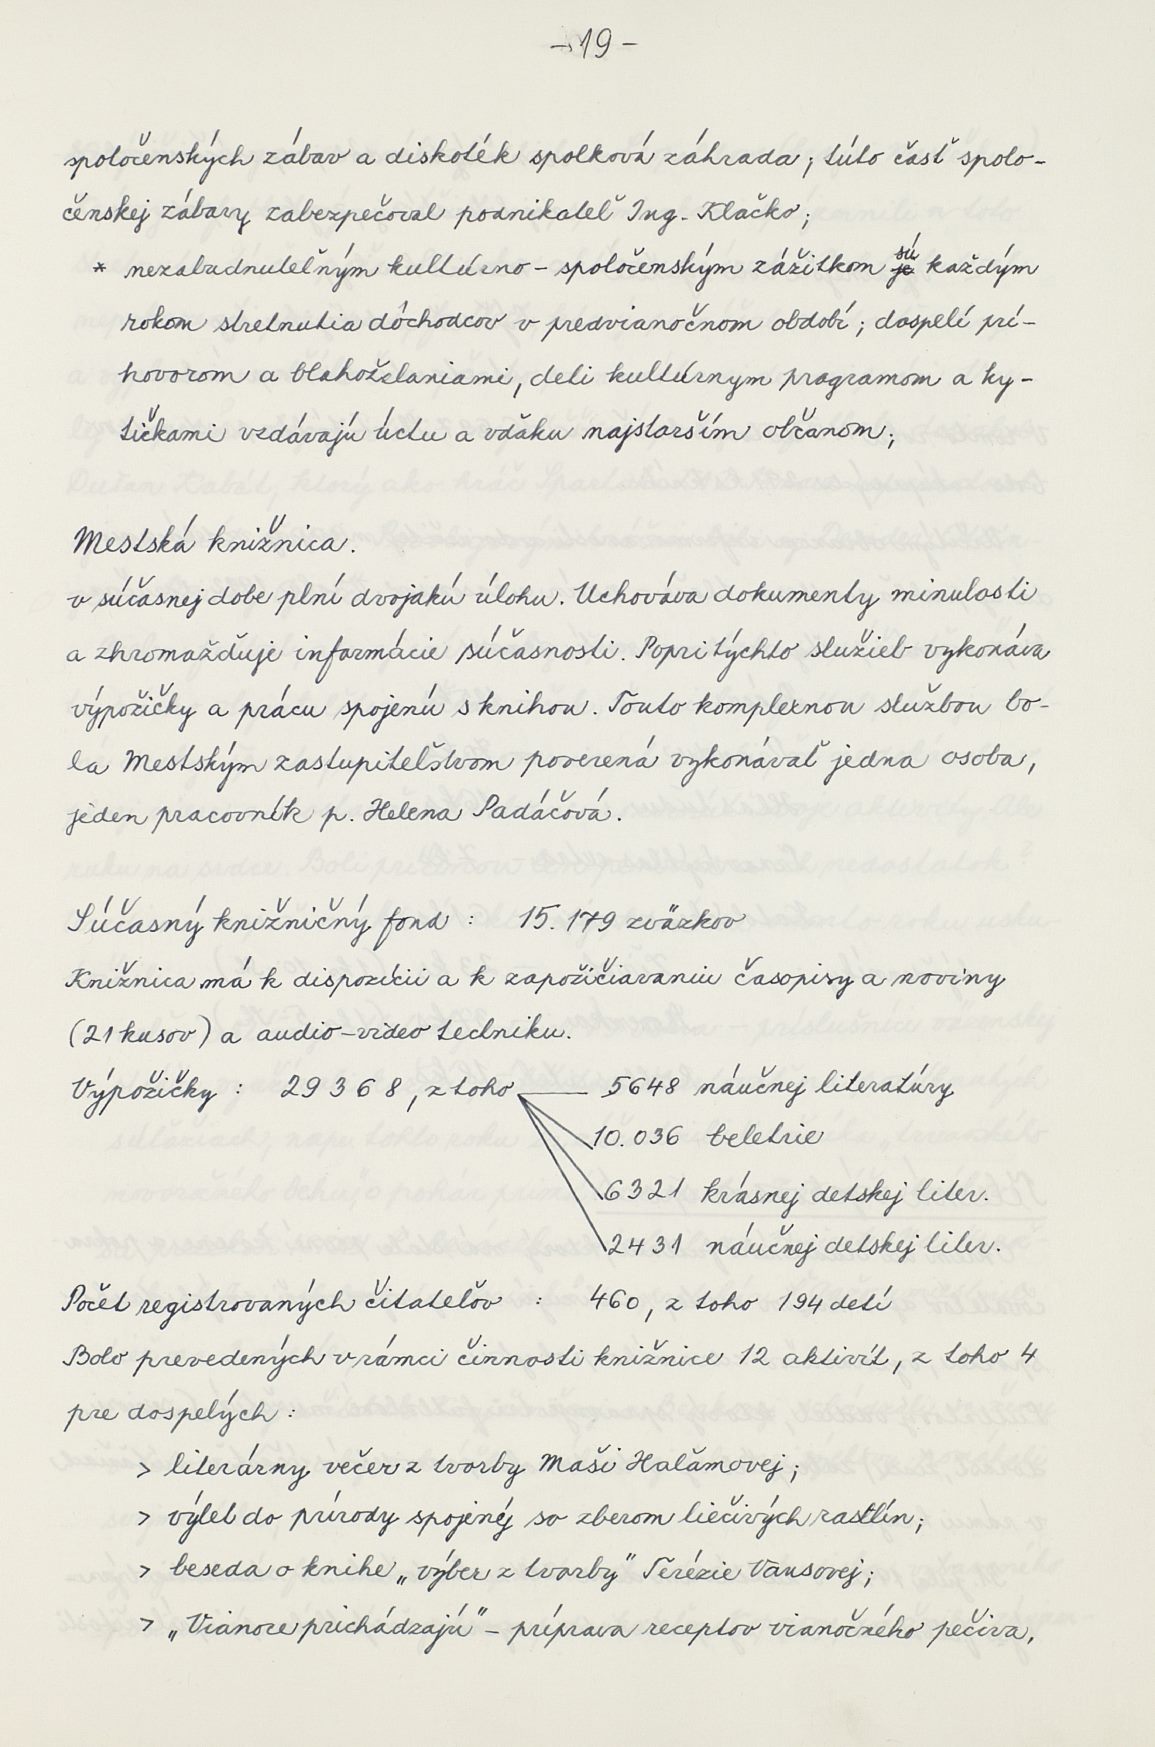 - 19 -
spoločenských zábav a diskoték spolková záhrada; túto časť spolo-
čenskej zábavy zabezpečoval podnikateľ Ing. Klačko;
* nezabudnuteľným kultúrno - spoločenským zážitkom sú každým
rokom stretnutia dôchodcov v predvianočnom období; dospelí prí-
hovorom a blahoželaniami, deti kultúrnym programom a ky-
tičkami vzdávajú úctu a vďaku najstarším občanom;
Mestská knižnica.
v súčasnej dobe plní dvojakú úlohu. Uchováva dokumenty minulosti
a zhromažďuje informácie súčasnosti. Popri týchto služieb vykonáva
výpožičky a prácu spojenú s knihou. Touto komplexnou službou bo-
la Mestským zastupiteľstvom poverená vykonávať jedna osoba,
jeden pracovník p. Helena Padáčová.
Súčasný knižničný fond : 15.179 zväzkov
Knižnica má k dispozícii a k zapožičiavaniu časopisy a noviny
(21 kusov) a audio-video techniku.
Výpožičky : 29 368, z toho 5648 náučnej literatúry
10.036 beletrie
6321 krásnej detskej liter.
2431 náučnej detskej liter.
Počet registrovaných čitateľov : 460, z toho 194 detí
Bolo prevedených v rámci činnosti knižnice 12 aktivít, z toho 4
pre dospelých :
> literárny večer z tvorby Maši Haľamovej;
> výlet do prírody spojený so zberom liečivých rastlín;
> beseda o knihe „výber z tvorby" Terézie Vansovej;
> „Vianoce prichádzajú" - príprava receptov vianočného pečiva,